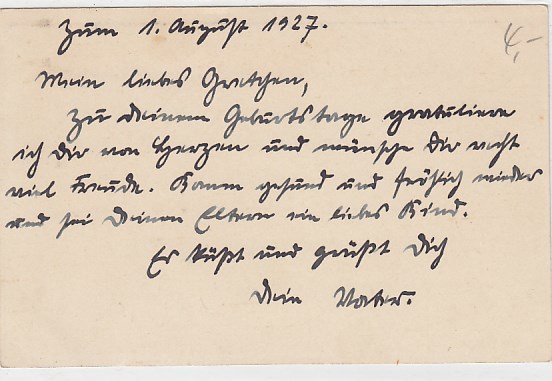 Zum 1. August 1927.
4,-
Mein liebes Gretchen,
Zu Deinem Geburtstage gratuliere
ich Dir von Herzen und wünsche Dir recht
viel Freude. Komm gesund und fröhlich wieder
und sei Deinen Eltern ein liebes Kind.
Es küßt und grüßt Dich
Dein Vater.